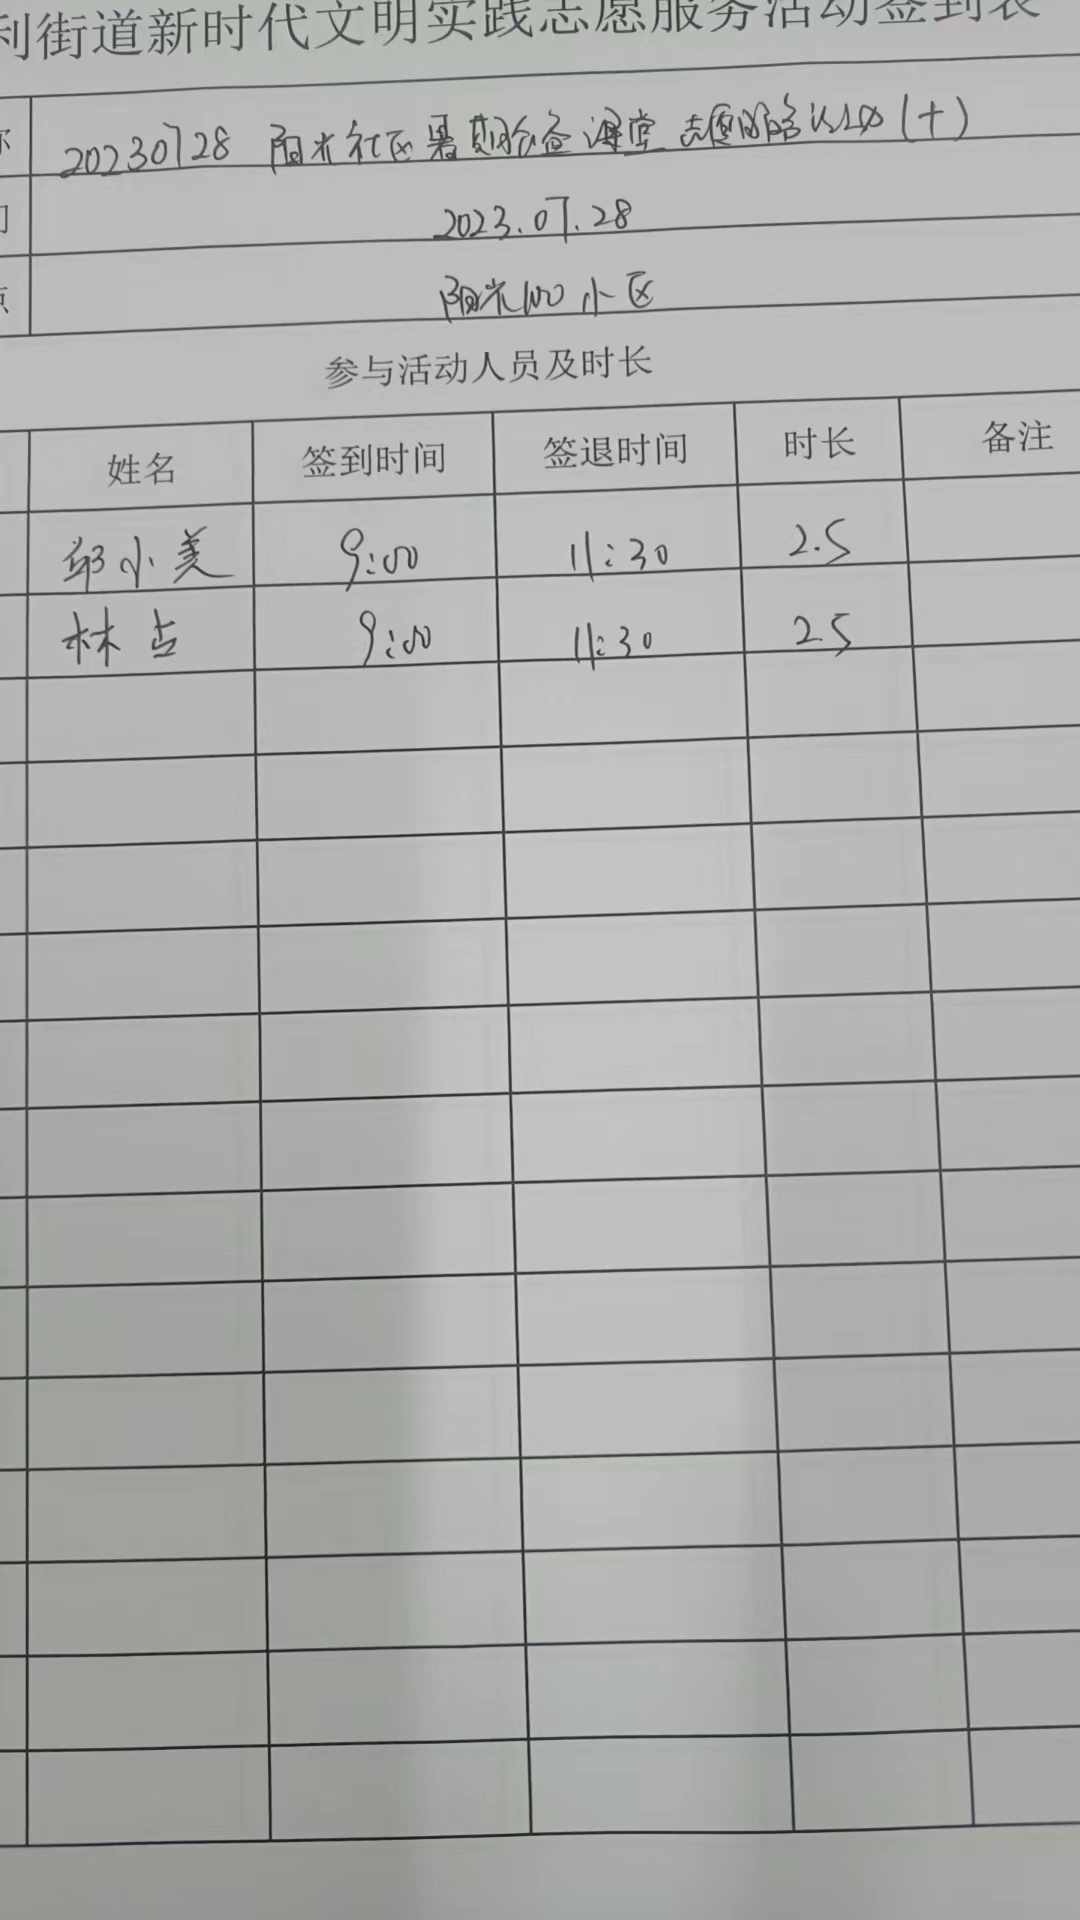 利街道新时代文明实践志愿服务活动签到表
称 20230728 阳光社区暑期公益课堂志愿服务认领(十)
间 2023.07.28
点 阳光100小区
参与活动人员及时长
姓名 签到时间 签退时间 时长 备注
邱小美 9:00 11:30 2.5
林占 9:00 11:30 2.5